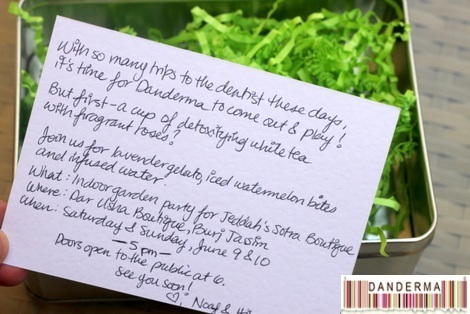 With so many trips to the dentist these days,
it's time for Danderma to come out & play!
But first - a cup of detoxifying white tea
with fragrant roses?
Join us for lavender gelato, iced watermelon bites
and infused water.
What: Indoor garden party for Jeddah's Sotra Boutique
Where: Dar Aisha Boutique, Burj Jassim
When: Saturday & Sunday, June 9 & 10
— 5 pm —
Doors open to the public at 6.
See you soon!
Nouf &
DANDERMA